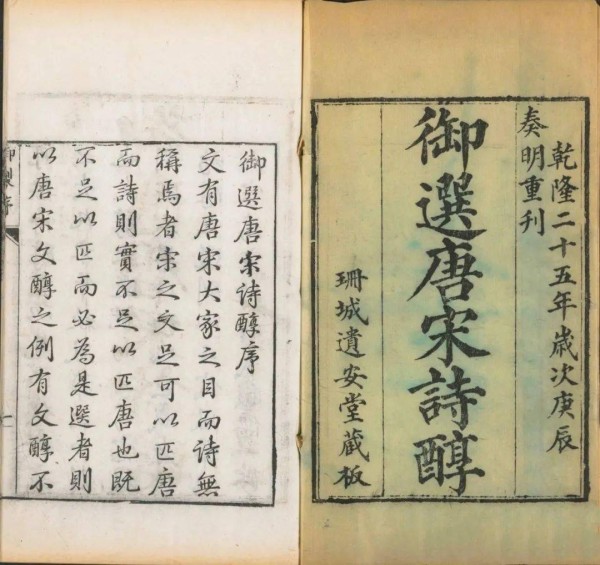 乾隆二十五年歲次庚辰
奏明重刊
御選唐宋詩醇
珊城遺安堂藏板
御選唐宋詩醇序
文有唐宋大家之目而詩無
稱焉者宋之文足可以匹唐
而詩則實不足以匹唐也既
不足以匹而必為是選者則
以唐宋文醇之例有文醇不
御製序